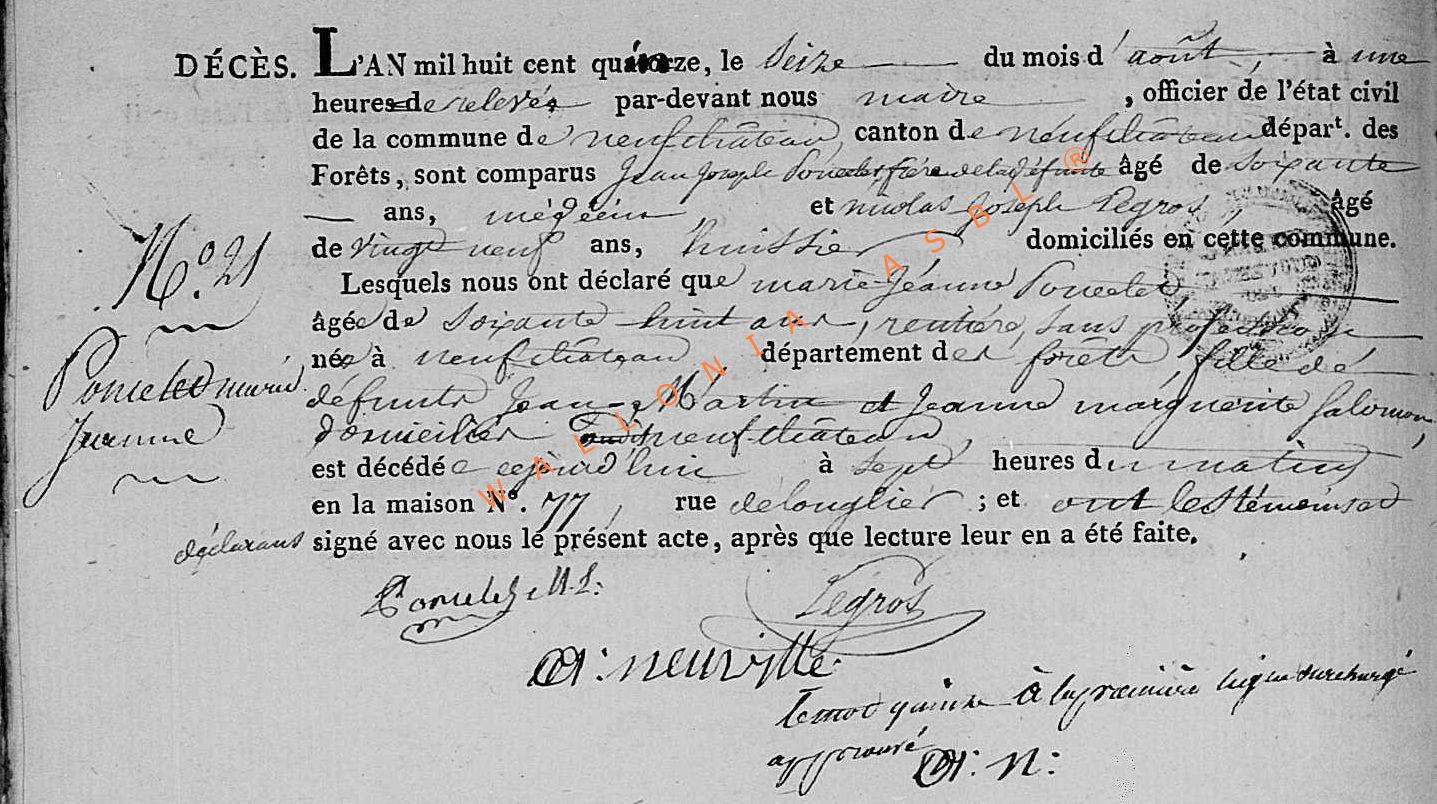 DÉCÈS. L'AN mil huit cent quinze, le Seize du mois d'août, à une
heures de relevée par-devant nous maire, officier de l'état civil
de la commune de neufchâteau, canton de neufchâteau dépar<sup>t</sup>. des
Forêts, sont comparus Jean Joseph Poncelet, frére de la défunte âgé de Soixante
ans, médécin, et nicolas Joseph Legros, âgé
de vingt neuf ans, huissier domiciliés en cette commune.
Lesquels nous ont déclaré que marie-Jéanne Poncelet
âgée de Soixante huit ans, rentiére, sans profession
née à neufchâteau département des forêts, fille de
défunts Jean-Martin et Jeanne marguerite Salomon,
domiciliés neufchâteau,
est décédée cejourd'hui à sept heures du matin
en la maison N°. 77, rue delonglier; et ont les témoins et
déclarans signé avec nous le présent acte, après que lecture leur en a été faite.
N°. 21
Poncelet marie
Jeanne
Poncelet
Legros
neuville
le mot quinze à la premiére ligne surchargé
approuvé
N:
WALLONIA ASBL ®